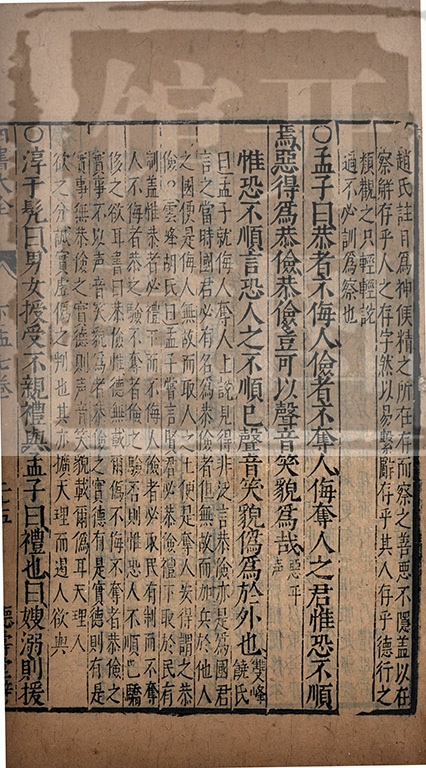 趙氏註曰爲神候精之所在存而察之善惡不隱蓋以在
察解存乎人之存字然以易繫辭存乎其人存乎德行之
類觀之只輕輕說
過不必訓爲察也
○孟子曰恭者不侮人儉者不奪人侮奪人之君惟恐不順
焉惡得爲恭儉恭儉豈可以聲音笑貌爲哉惡平聲
惟恐不順言恐人之不順已聲音笑貌僞爲於外也雙峰饒氏
曰孟子就侮人奪人上說見得非泛言恭儉亦是爲國君
言之當時國君必有名爲恭儉者但無故而加兵於他人
之國便是侮人無故而取人之土便是奪人矣得謂之恭
儉○雲峰胡氏曰孟子嘗言賢君必恭儉禮下取於民有
制蓋惟恭者必禮下而不侮人儉者必取民有制而不奪
人不侮者恭之驗不奪者儉之驗否則惟恐人不順已驕
侈之欲耳書曰恭儉惟德無載爾僞不侮不奪者恭儉之
實事不以聲音笑貌爲者恭儉之實德有是實德則有是
實事無恭儉之實德則聲音笑貌載爾僞耳天理人
欲之分誠實虛僞之判也其亦擴天理而遏人欲與
○淳于髡曰男女授受不親禮與孟子曰禮也曰嫂溺則援